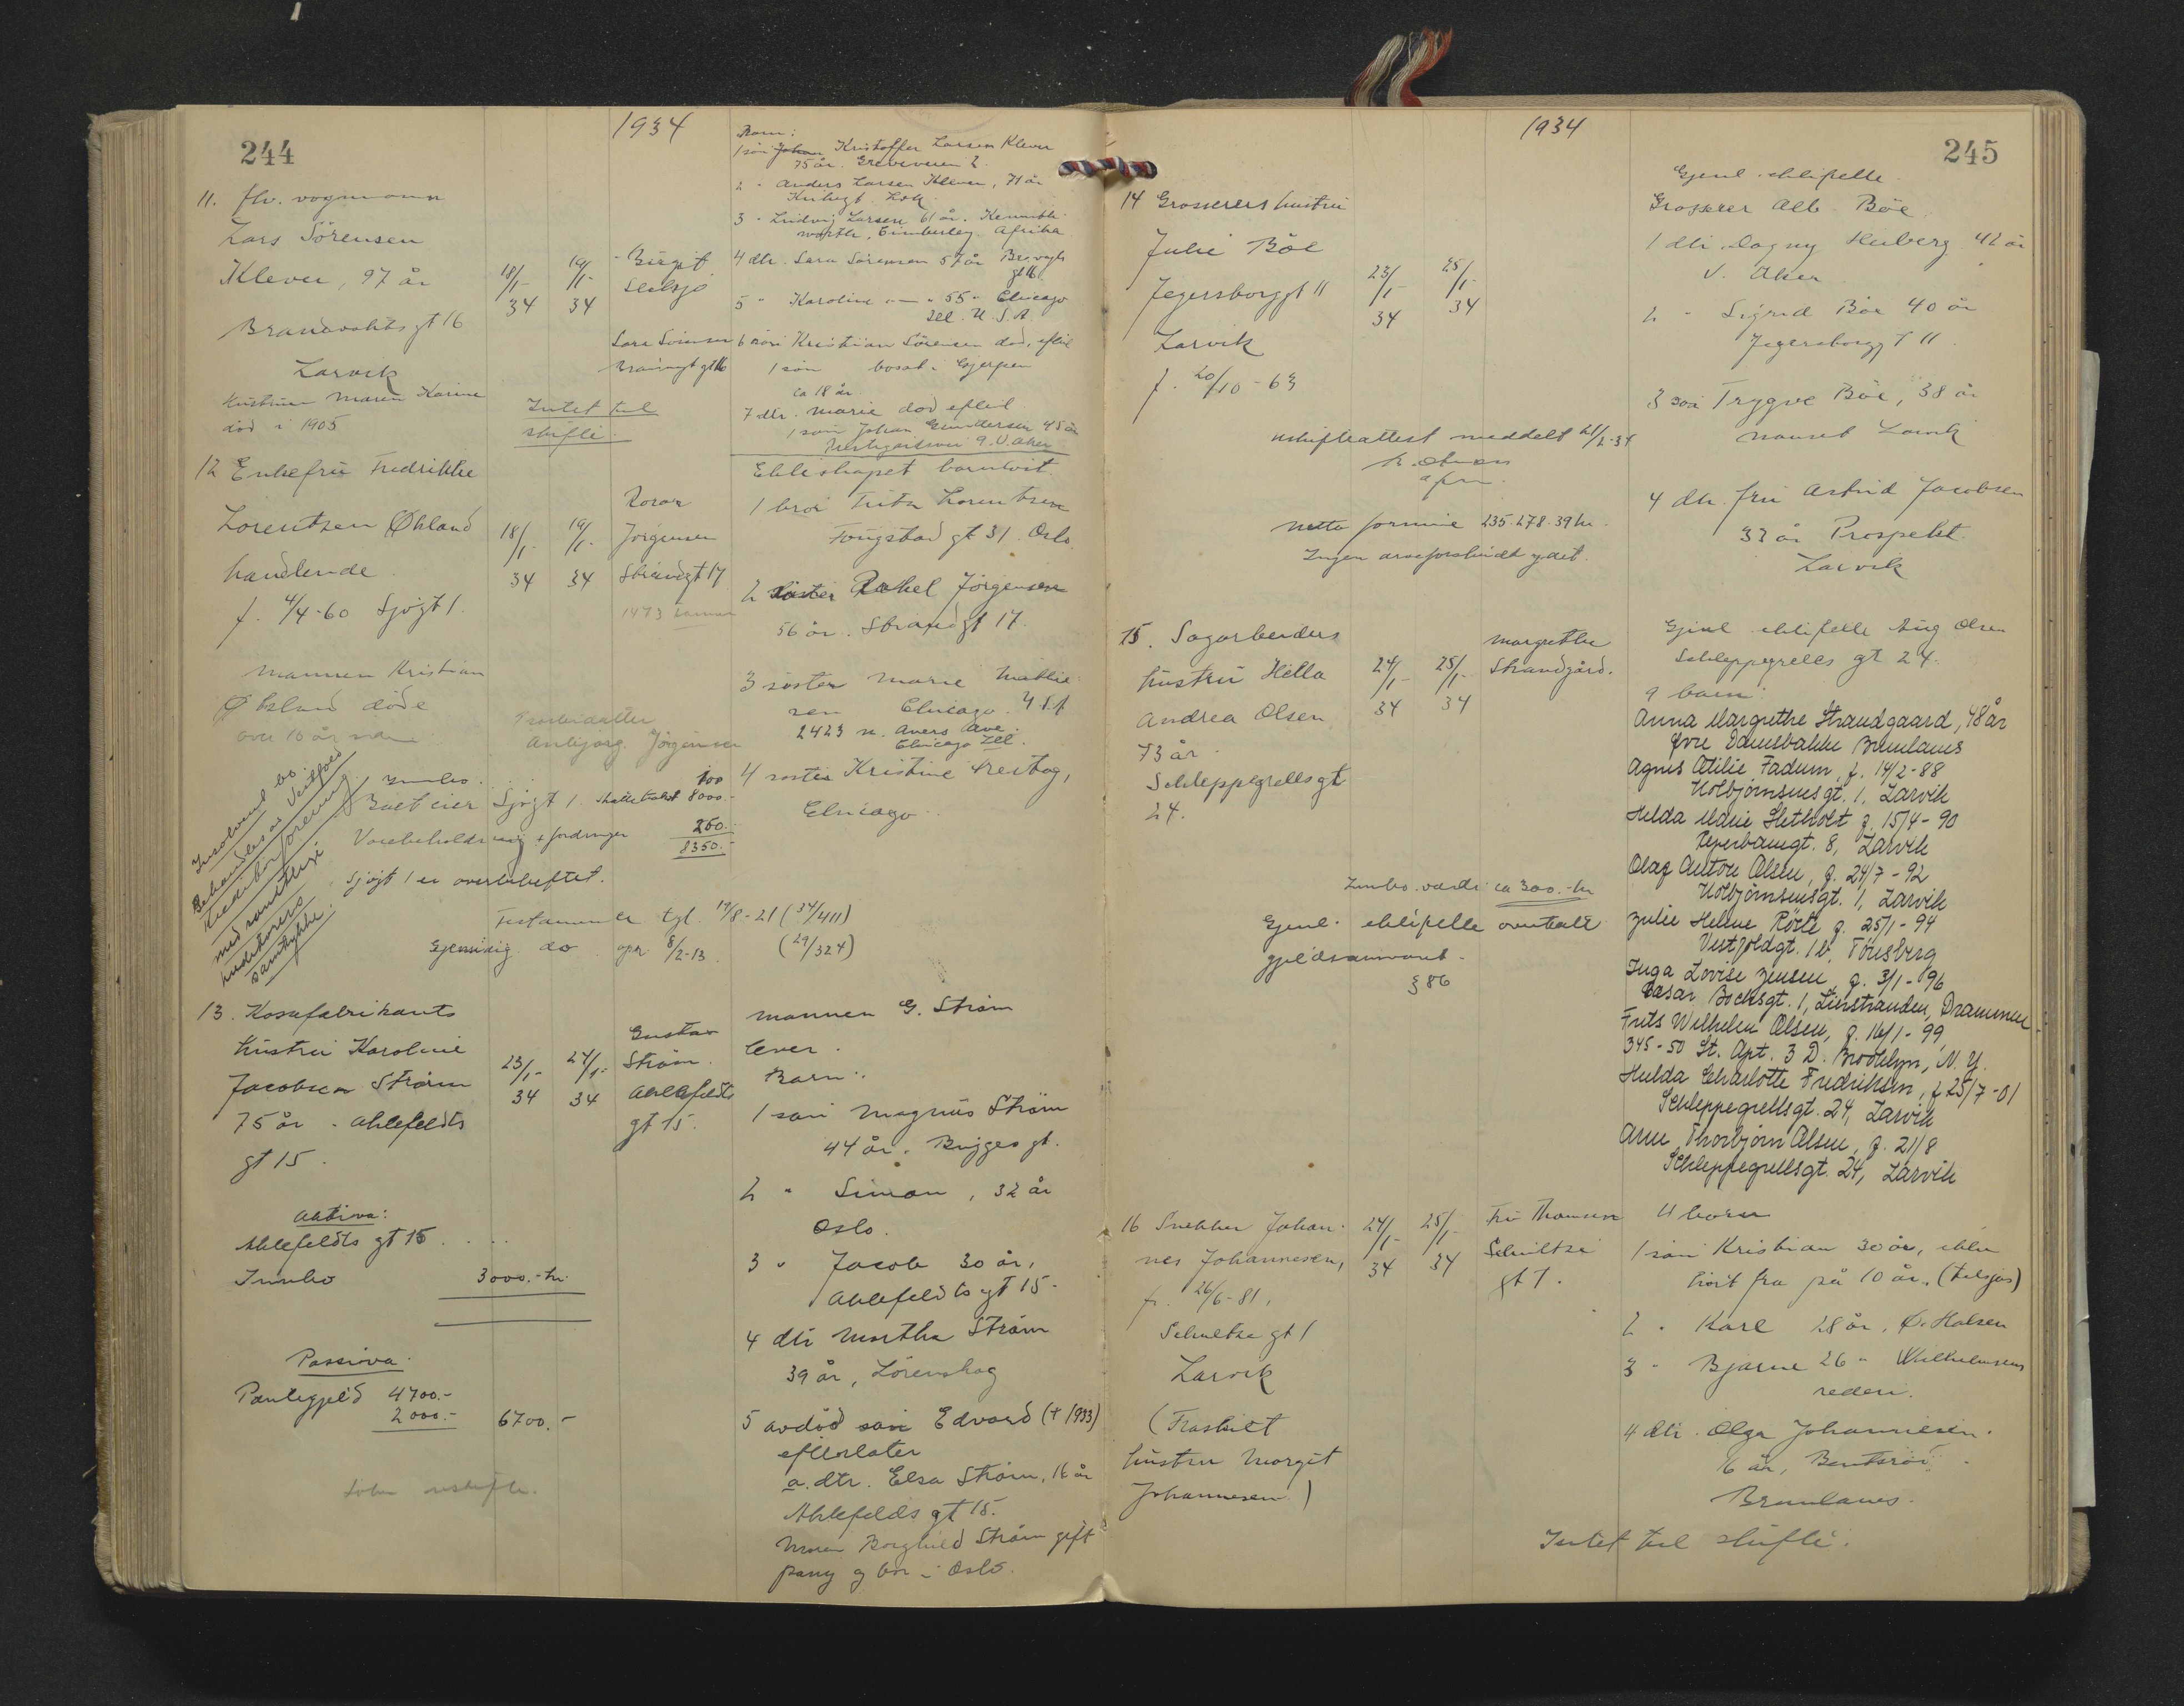 244
1934
11. fhv. vognmann
Lars Sörensen
Klever, 97 år
Brandvaktsgt 16
Larvik
Hustruen Maren Karine
död i 1905
18/1- 34
19/1- 34
Birgit
Sara Sörensen
Intet til
skifte.
Barn:
1 sön Johan Kristoffer Larsen Klever
75 år. Greveveien 2.
2 " Anders Larsen Klever, 71 år
3 " Ludvig Larsen 61 år.
Afrika
4 dtr. Sara Sörensen 57 år
gt 16
5 " Karoline " 55 " Chicago
Ill. U.S.A.
6 sön Kristian Sörensen död, efterl.
1 sön bosat i Gjerpen
ca 18 år.
7 dtr. Marie död efterl.
1 sön Johan Gundersen 45 år
12 Enkefru Fredrikke
Lorentzen Økland
handlende
f. 4/4-60 Sjøgt 1.
18/1- 34
19/1- 34
Jörgensen
Strandgt 17
mannen Kristian
Økland döde
over 10 år siden
Søsterdatter
Anbjørg Jörgensen
Ekteskapet barnløst.
1 bror
Lorentzen
gt 31 Oslo.
2 söster Rakel Jörgensen
56 år. Strandgt 17.
3 söster Marie Mathie-
sen Chicago U.S.A
2423 n. Avers Ave.
Chicago Ill.
4 söster Kristine
Chicago
Insolvent bo.
Behandles av Vestfold
Kreditorforening
med samtlige
kreditorers
samtykke.
Innbo. 100
Boet eier Sjøgt 1. skattetakst 8000.-
Varebeholdning + fordringer 250.-
8350.-
Sjøgt 1 er overbeheftet.
Testamente tgl. 17/8-21 (34/411)
Gjensidig do opr. 8/2-13. (29/324)
13. Kosefabrikants
hustru Karoline
Jacobsen Ström
75 år. Ahlefeldts
gt 15.
23/1- 34
24/1- 34
Gustav
Ström.
Ahlefeldts
gt 15.
Aktiva:
Ahlefeldts gt 15 . . . .
Innbo 3000.-kr.
Passiva.
Pantegjeld 4700.-
2000.- 6700.-
uskifte.
mannen G. Ström
lever.
Barn:
1 sön Magnus Ström
44 år. Bryggegt.
2 " Simon, 32 år
Oslo.
3 " Jacob 30 år,
Ahlefeldts gt 15.
4 dtr Martha Ström
39 år, Lörenskog
5 avdöd sön Edvard († 1933)
efterlater
a. dtr. Elsa Ström, 16 år
Ahlefelds gt 15.
Moren Borghild Ström gift
påny og bor i Oslo.
1934
245
14 Grosserers hustru
Julie Böe
Jegersborggt 11
Larvik
f. 20/10-63
23/1- 34
25/1- 34
Uskifteattest meddelt 21/2-34
Netto formue 235.278.39 kr.
Ingen arveforskudd ydet.
Gjenl. ektefelle
Grosserer Alb. Böe
1 dtr. Dagny Heiberg 42 år
V. Aker
2 " Sigrid Böe 40 år
Jegersborggt 11.
3 sön Trygve Böe, 38 år
Nanset Larvik
4 dtr. fru Astrid Jacobsen
32 år Prospekt.
Larvik
15. Sagarbeiders
hustru Hella
Andrea Olsen
73 år.
Schleppegrellsgt
24.
24/1- 34
25/1- 34
Margrethe
Strandgård.
Innbo. verdi ca 300.-kr
Gjenl. ektefelle overtatt
gjeldsansvaret.
§ 86
Gjenl. ektefelle Aug Olsen
Schleppegrells gt 24.
9 barn:
Anna Margrethe Strandgaard, 48 år
Øvre Damsbakke Brunlanes
Agnes Otilie Fadum, f. 14/2-88
Kolbjørnsensgt. 1, Larvik
Helda Marie Sletholt f. 15/4-90
Reperbanegt. 8, Larvik
Olaf Anton Olsen, f. 24/7-92
Kolbjørnsensgt. 1, Larvik
Julie Helene Röste f. 25/1-94
Vestfoldgt. 1 b, Tönsberg
Inga Lovise Jensen, f. 3/1-96
Cæsar Bochsgt. 1, Lierstranden, Drammen
Frits Wilhelm Olsen, f. 16/1-99,
345-50 St. Apt. 3 D. Brooklyn, N.Y.
Hulda Charlotte Fredriksen, f 25/7-01
Schleppegrellsgt. 24, Larvik
Arne Thorbjörn Olsen, f. 21/8
Schleppegrellsgt. 24, Larvik
16 Snekker Johan-
nes Johannesen,
f. 26/6-81,
Schultze gt 1
Larvik
(Fraskilt
hustru Margit
Johannesen.)
24/1- 34
25/1- 34
Fru Thomsen
Schultze
gt 1.
4 barn
1 sön Kristian 30 år, ikke
hört fra på 10 år. (tilsjøs)
2 " Karl 28 år, Ø. Halsen
3 " Bjarne 26 "
reden.
4 dtr. Olga Johannesen.
16 år, Bentsröd
Brunlanes.
Intet til skifte.